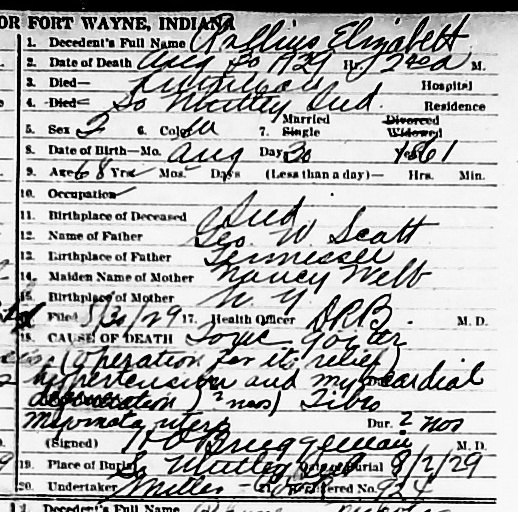 OR FORT WAYNE, INDIANA
1. Decedent's Full Name Elizabeth
2. Date of Death Aug 30 1929 Hr. M.
3. Died— Lutheran Hospital
4. Died— So Whitley Ind. Residence
Married Divorced
5. Sex F 6. Color W 7. Single Widowed
8. Date of Birth—Mo. Aug Day 30 Yr. 1861
9. Age 68 Yrs. Mos. Days (Less than a day)— Hrs. Min.
10. Occupation
11. Birthplace of Deceased Ind
12. Name of Father Geo. W Scott
13. Birthplace of Father Tennessee
14. Maiden Name of Mother Nancy Webb
15. Birthplace of Mother N. Y
Filed 8/30/29 17. Health Officer DRB M. D.
18. CAUSE OF DEATH Toxic goiter
(operation for its relief)
hypertension and myocardial
degeneration) 2 mos) Fibro
myomata uteri Dur. 2 mos
(Signed) Brueggeman M. D.
19. Place of Burial So Whitley Date of Burial 9/2/29
20. Undertaker Miller 21. Registered No. 924
1. Decedent's Full Name